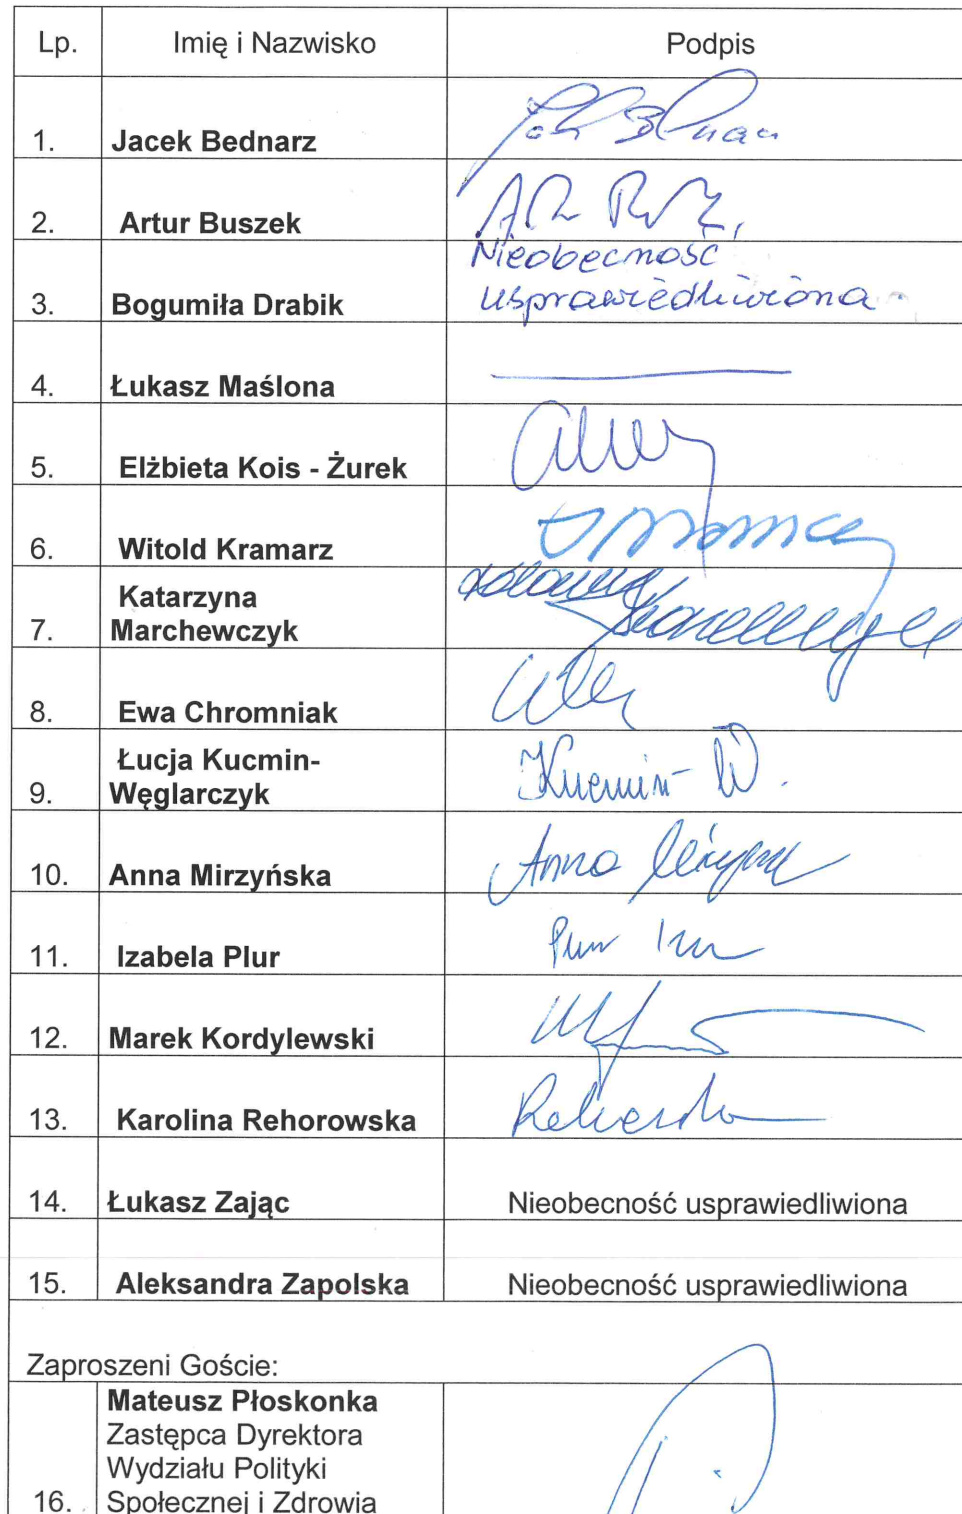 Lp. Imię i Nazwisko Podpis
1. Jacek Bednarz
2. Artur Buszek
Nieobecność
3. Bogumiła Drabik usprawiedliwiona
4. Łukasz Maślona
5. Elżbieta Kois - Żurek
6. Witold Kramarz
Katarzyna
7. Marchewczyk
8. Ewa Chromniak
Łucja Kucmin-
9. Węglarczyk Kucmin- W.
10. Anna Mirzyńska Anna
11. Izabela Plur
12. Marek Kordylewski
13. Karolina Rehorowska
14. Łukasz Zając Nieobecność usprawiedliwiona
15. Aleksandra Zapolska Nieobecność usprawiedliwiona
Zaproszeni Goście:
Mateusz Płoskonka
Zastępca Dyrektora
Wydziału Polityki
16. Społecznej i Zdrowia